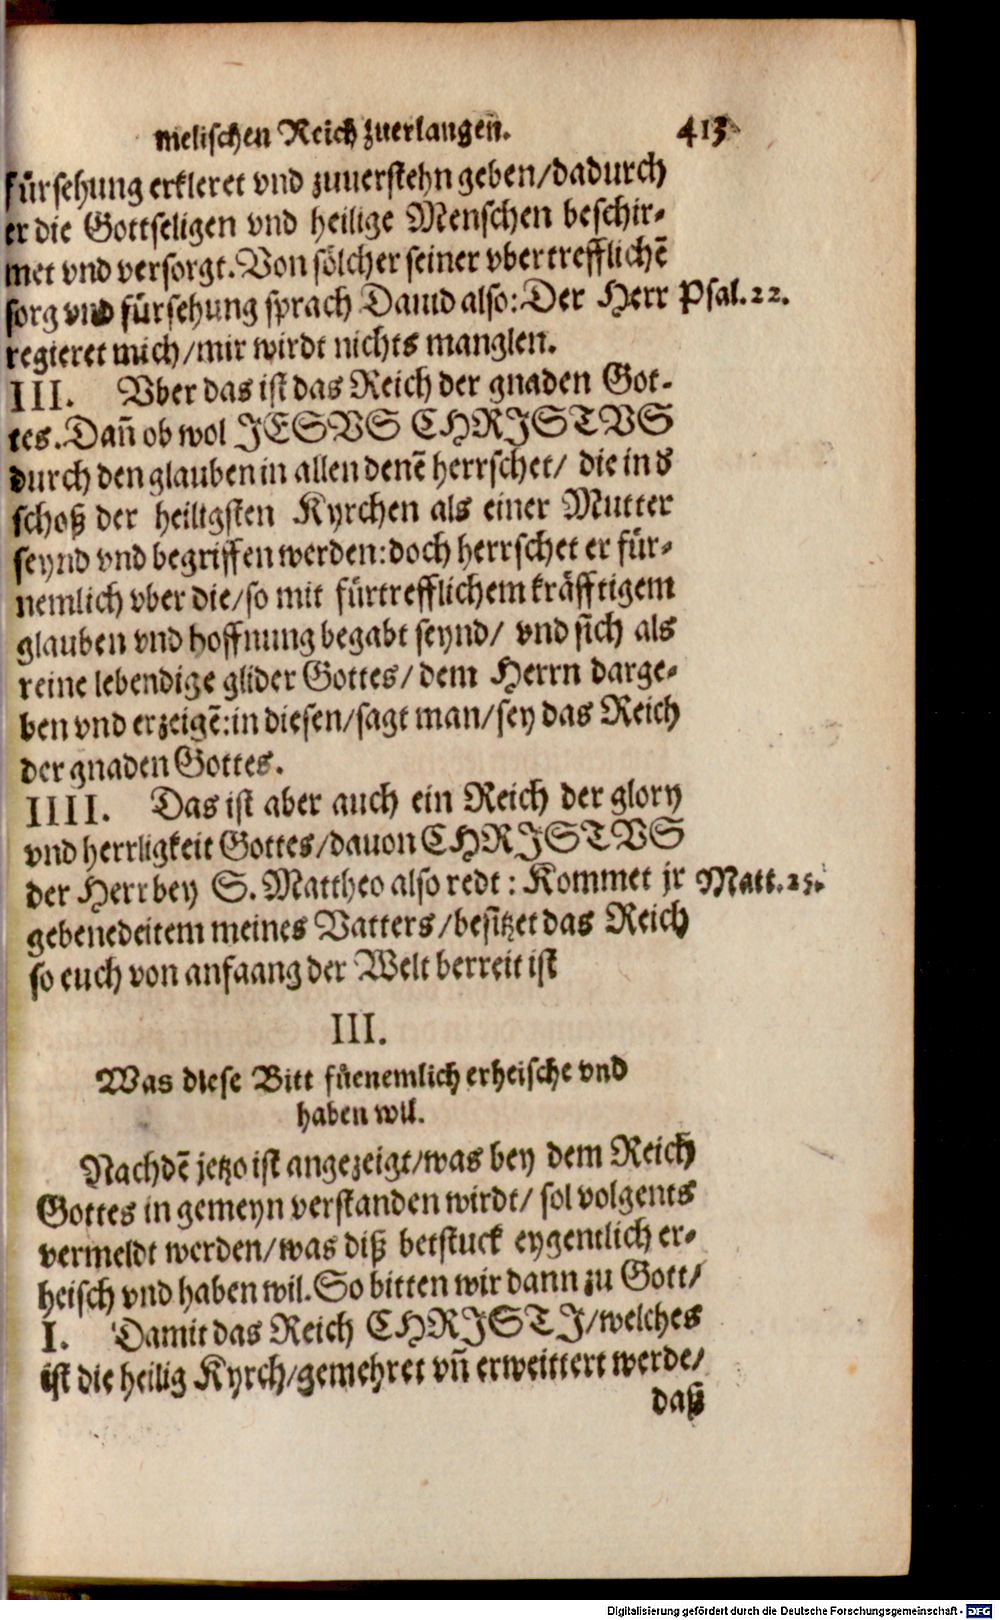 melischen Reich zuerlangen. 413
fürsehung erkleret vnd zuuerstehn geben/dadurch
er die Gottseligen vnd heilige Menschen beschir-
met vnd versorgt. Von sölcher seiner vbertrefflichē
sorg vnd fürsehung sprach Dauid also: Der Herr Psal. 22.
regieret mich/mir wirdt nichts manglen.
III. Vber das ist das Reich der gnaden Got-
tes. Dañ ob wol JESVS CHRJSTVS
durch den glauben in allen denē herrschet/ die in d
schoß der heiligsten Kyrchen als einer Mutter
seynd vnd begriffen werden: doch herrschet er für-
nemlich vber die/so mit fürtrefflichem kräfftigem
glauben vnd hoffnung begabt seynd/ vnd sich als
reine lebendige glider Gottes/ dem Herrn darge-
ben vnd erzeigē: in diesen/sagt man/sey das Reich
der gnaden Gottes.
IIII. Das ist aber auch ein Reich der glory
vnd herrligkeit Gottes/dauon CHRJSTVS
der Herr bey S. Mattheo also redt: Kommet jr Matt. 25.
gebenedeitem meines Vatters/besitzet das Reich
so euch von anfaang der Welt berreit ist
III.
Was diese Bitt füenemlich erheische vnd
haben wil.
Nachdē jetzo ist angezeigt/was bey dem Reich
Gottes in gemeyn verstanden wirdt/ sol volgents
vermeldt werden/was diß betstuck eygentlich er-
heisch vnd haben wil. So bitten wir dann zu Gott/
I. Damit das Reich CHRJSTJ/welches
ist die heilig Kyrch/gemehret vñ erweittert werde/
daß
Digitalisierung gefördert durch die Deutsche Forschungsgemeinschaft - DFG